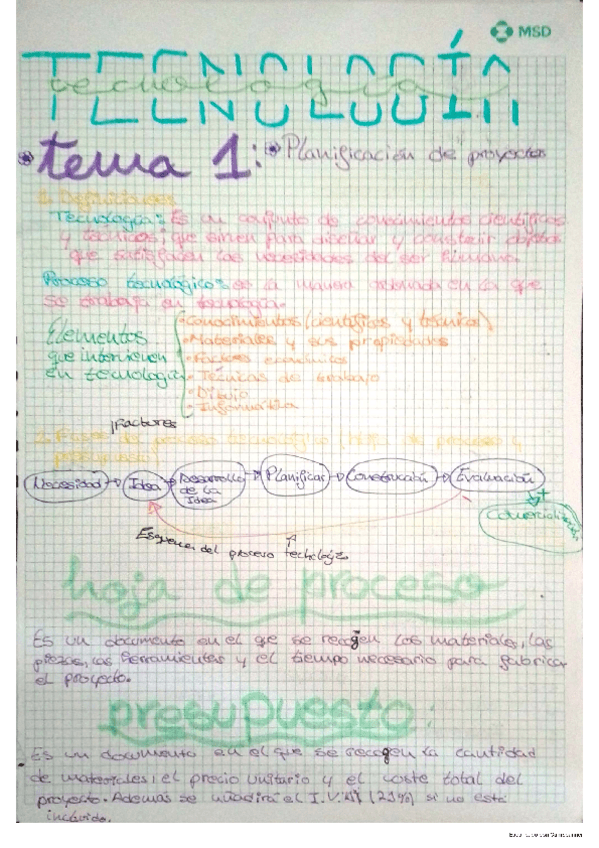 MSD
TECNOLOGÍA
tecnología
tema 1: Planificación de proyectos
1. Definiciones
Tecnología: Es un conjunto de conocimientos científicos
y técnicos, que sirven para diseñar y construir objetos
que satisfacen las necesidades del ser humano.
Proceso tecnológico: es la manera ordenada en la que
se trabaja en tecnología.
Elementos
que intervienen
en tecnología
• Conocimientos (científicos y técnicos)
• Materiales y sus propiedades
• Factores económicos
• Técnicas de trabajo
• Dibujo
• Informática
Factores
2. Fases del proceso tecnológico (hoja de proceso y
presupuesto)
Necesidad → Idea → Desarrollo de la Idea → Planificar → Construcción → Evaluación
Comercialización
Esquema del proceso technologic
hoja de proceso
Es un documento en el que se recogen los materiales, las
piezas, las herramientas y el tiempo necesario para fabricar
el proyecto.
presupuesto:
Es un documento en el que se recogen la cantidad
de materiales, el precio unitario y el coste total del
proyecto. Además se añadirá el I.V.A (21%) si no está
incluido.